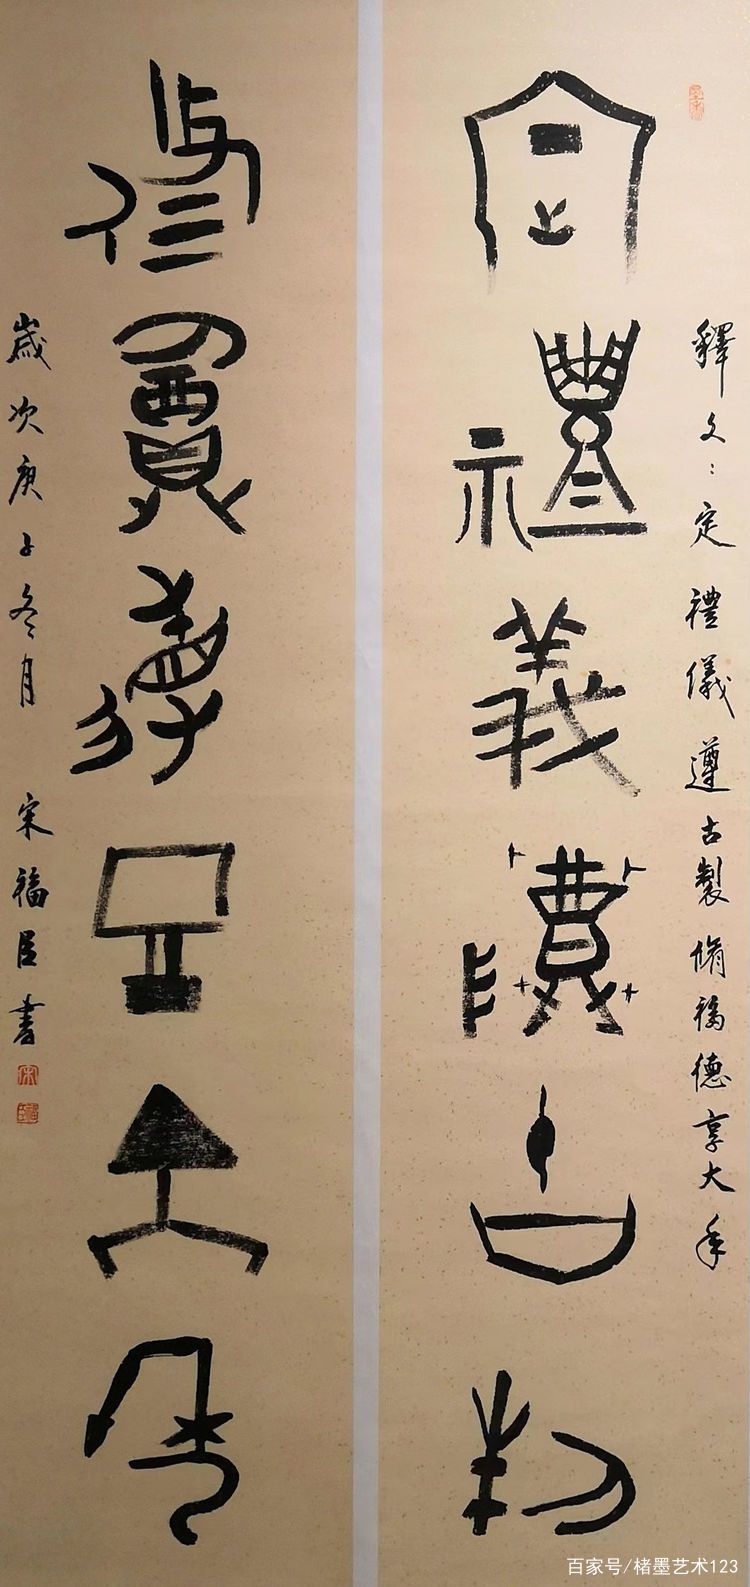 定禮義遵古制
脩福德享大年
釋文：定禮儀遵古製脩福德享大年
歲次庚子冬月 宋福臣書
百家号/楮墨艺术123